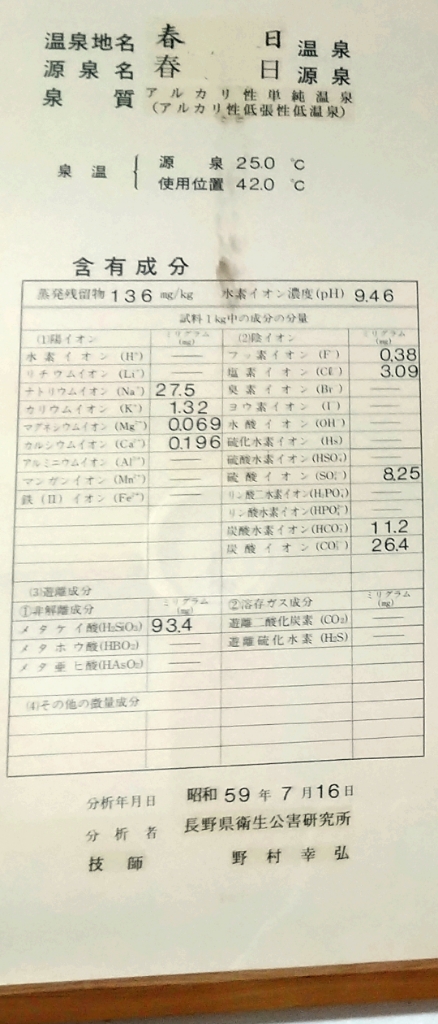 温泉地名 春日 温泉
源泉名 春日 源泉
泉質 アルカリ性単純温泉
(アルカリ性低張性低温泉)
泉温 源泉 25.0 ℃
使用位置 42.0 ℃
含有成分
蒸発残留物 136 mg/kg 水素イオン濃度(pH) 9.46
試料1kg中の成分の分量
(1)陽イオン ミリグラム(mg) (2)陰イオン ミリグラム(mg)
水素イオン (H⁺) — フッ素イオン (F⁻) 0.38
リチウムイオン (Li⁺) — 塩素イオン (Cℓ⁻) 3.09
ナトリウムイオン (Na⁺) 27.5 臭素イオン (Br⁻) —
カリウムイオン (K⁺) 1.32 ヨウ素イオン (I⁻) —
マグネシウムイオン (Mg²⁺) 0.069 水酸イオン (OH⁻) —
カルシウムイオン (Ca²⁺) 0.196 硫化水素イオン (Hs) —
アルミニウムイオン (Al³⁺) — 硫酸水素イオン (HSO₄⁻) —
マンガンイオン (Mn²⁺) — 硫酸イオン (SO₄²⁻) 8.25
鉄(II)イオン (Fe²⁺) — リン酸二水素イオン (H₂PO₄⁻) —
リン酸水素イオン (HPO₄²⁻) —
炭酸水素イオン (HCO₃⁻) 11.2
炭酸イオン (CO₃²⁻) 26.4
(3)遊離成分
①非解離成分 ミリグラム(mg) ②溶存ガス成分 ミリグラム(mg)
メタケイ酸(H₂SiO₃) 93.4 遊離二酸化炭素 (CO₂) —
メタホウ酸(HBO₂) — 遊離硫化水素 (H₂S) —
メタ亜ヒ酸(HAsO₂) —
(4)その他の微量成分
分析年月日 昭和59年7月16日
分析者 長野県衛生公害研究所
技師 野村幸弘